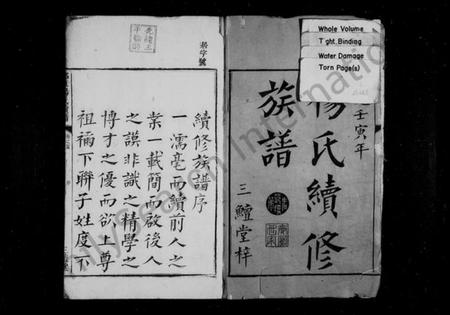 壬寅年
楊氏續修
族譜
三鱣堂梓
Whole Volume
Tight Binding
Water Damage
Torn Page(s)
續修族譜序
一濡毫而續前人之
業一載簡而啟後人
之謨非識之精學之
博才之優而欲上尊
祖禰下聯子姓度不